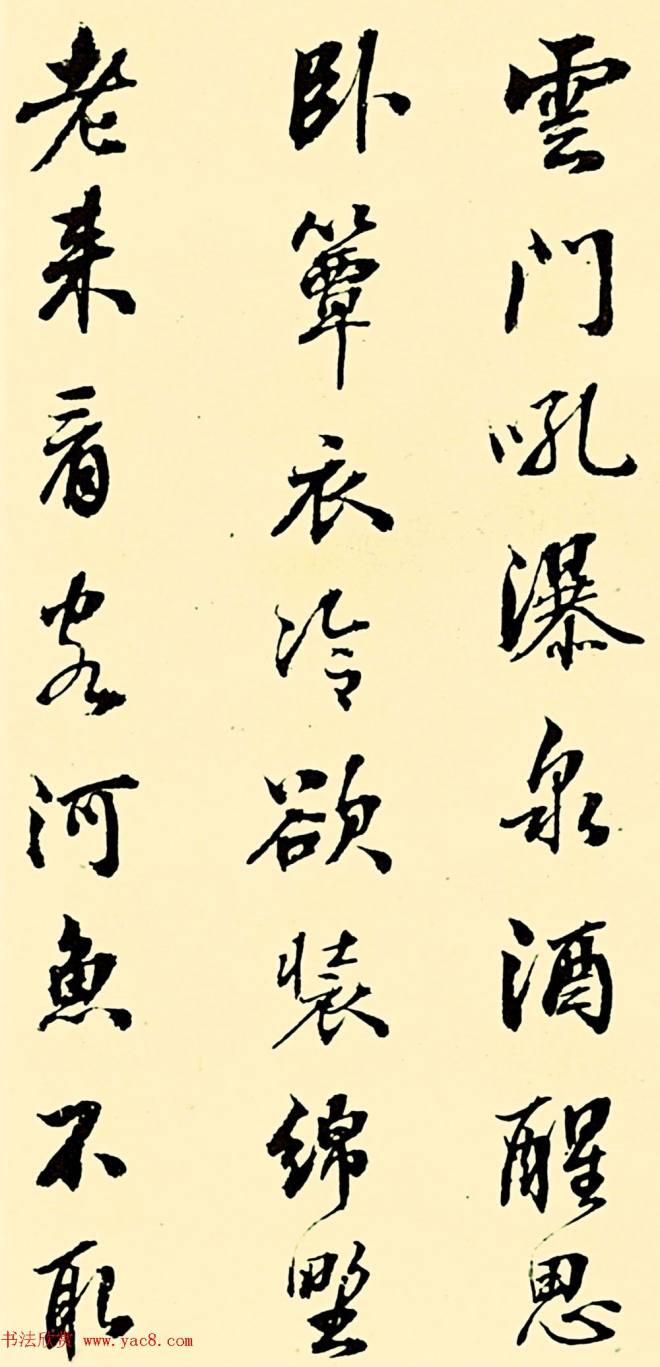 雲門吼瀑泉酒醒思
卧簟衣冷欲裝綿野
老来看客河魚不取
书法欣赏 www.yac8.com